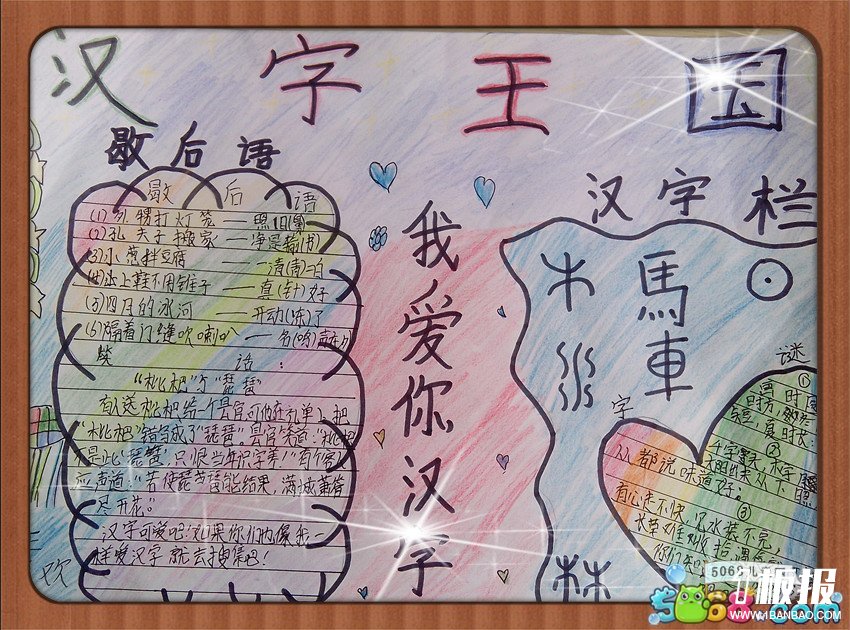 汉字王国
歇后语
歇后语
(1)孔 甥打灯笼——照旧(舅)
(2)孔夫子搬家——净是输(书)
(3)小葱拌豆腐——一清(青)二白
(4)上鞋不用锥子——真(针)好
(5)四月的冰河——开动(冻)了
(6)隔着门缝吹喇叭——名(鸣)声在外
笑 话:
“枇杷”与“琵琶”
有人送枇杷给一个县官,可他在礼单上把
“枇杷”错写成了“琵琶”。县官笑道:“枇杷
是此“琵琶”,只恨当年识字差!”有个客人
应声道:“若使琵琶能结果,满城箫管
尽开花。”
汉字可爱吧!如果你们也像我一
样爱汉字 就去搜集吧!
欢
我爱你汉字
汉字栏
木 馬 車
林
字谜
①
②
从 都说味道好。
③
有心走不快,见水装不完,
50
5068.com
板报
WWW.1BANBAO.COM